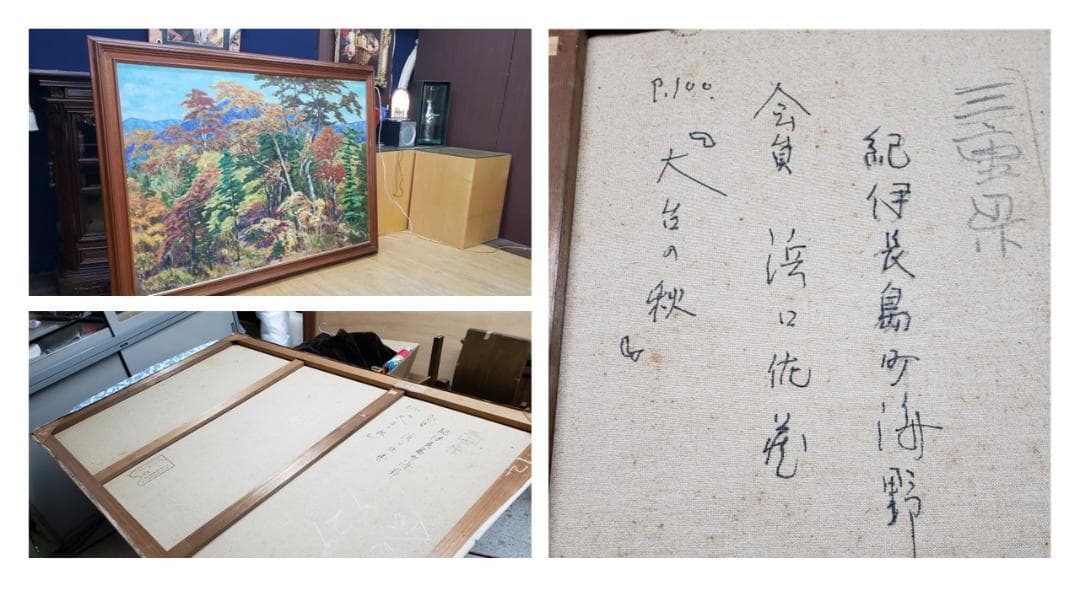 三重県
紀伊長島町海野
会員 浜口佐蔵
P.100.
『大台の秋』